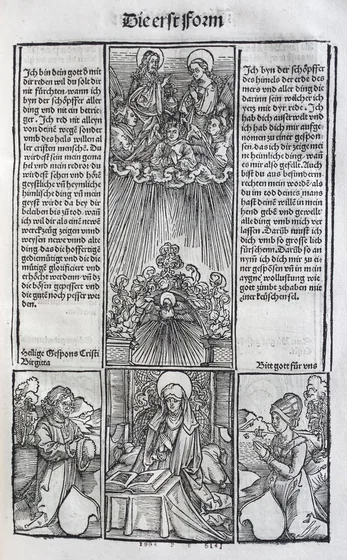 Die erst Form
Jch bin dein gott ō mit
dir reden wil du solt dir
nit fürchten wann ich
byn der schöpffer aller
ding vnd nit ein betrie-
ger. Jch red nit alleyn
von deinē wegē sonder
vmb des heils willen al
ler cristen menschē. Du
würdest sein mein goma
hel vnd mein redror du
würdest sehen vnd hörē
geystliche vñ heymliche
himlische ding vñ mein
geyst würt da bey dir
beleiben biß zů tod. wañ
ich wil dir als einē newē
werckzeüg zeigen vnnd
weysen newe vnnd alte
ding, das die hoffertigē
gediemütigt vnd die di
mütige glorificiert vnd
erhöcht werdenn vñ dz
die bösen gepessert vnd
die gütē noch pesser wer
den.
Heilige Gespons Cristi
Birgitta
Jch byn der schöpffer
des himels der erde des
mers vnd aller ding die
darinn sein wölcher ich
yetz mit dyr rede. Jch
hab dich außerwelt vnd
ich hab dich mir aufge-
nomen zů einer gespon-
sen. das ich dir zeige mei
ne heimliche ding. wañ
es mir also gefalt. Auch
bist du auß besunderm
rechten mein worden als
du im tod deines mans
hast deinē willē in mein
hend gebē vnd gewölt
alle ding vmb mich ver
lassen. Darüb můß ich
dich vmb so grosse lieb
fürsehenn. Darüb so an
nym ich dich mir zů ei-
ner gespōsen vñ in mein
aygne wollustung wie
gott zimbt zehaben mit
einer keüschen sel.
Bitt gott für vns